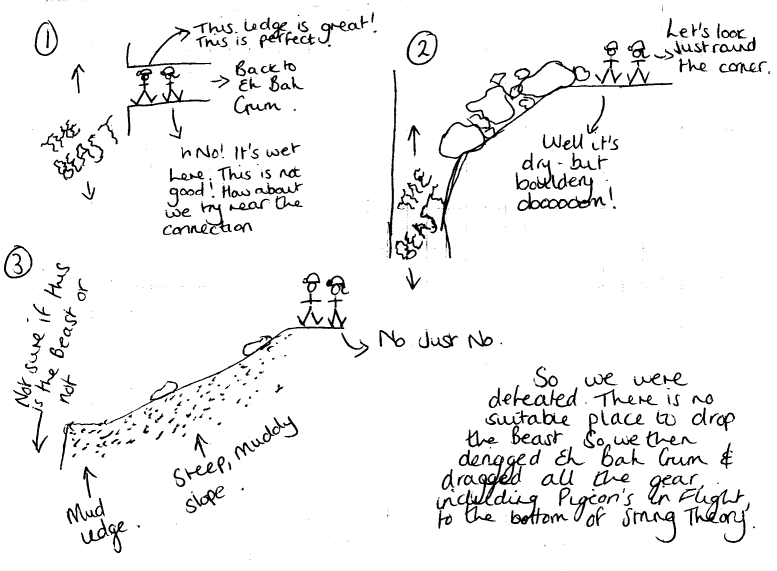 1
This ledge is great!
This is perfect!
Back to
Eh Bah
Gum.
No! It's wet
here. This is not
good! How about
we try near the
connection
BEAST
2
Let's look
Just round
the corner.
Well it's
dry - but
bouldery
dooooom!
BEAST
3
Not sure if this
is the Beast or
not
No Just No.
Steep, Muddy
slope.
Mud
ledge.
So we were
defeated. There is no
suitable place to drop
the Beast. So we then
derigged Eh Bah Gum &
dragged all the gear,
including Pigeon's in Flight,
to the bottom of String Theory.